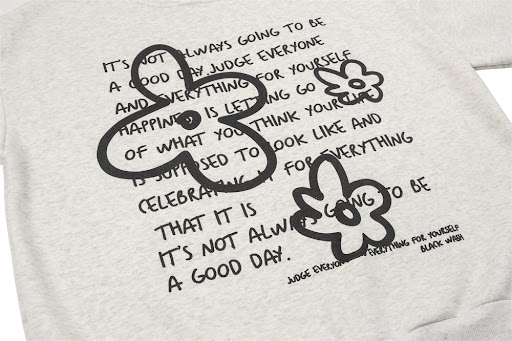 IT'S NOT ALWAYS GOING TO BE
A GOOD DAY. JUDGE EVERYONE
AND EVERYTHING FOR YOURSELF
HAPPINESS IS LETTING GO
OF WHAT YOU THINK YOUR LIFE
IS SUPPOSED TO LOOK LIKE AND
CELEBRATING IT FOR EVERYTHING
THAT IT IS
IT'S NOT ALWAYS GOING TO BE
A GOOD DAY.
JUDGE EVERYONE AND EVERYTHING FOR YOURSELF
BLACK WASH